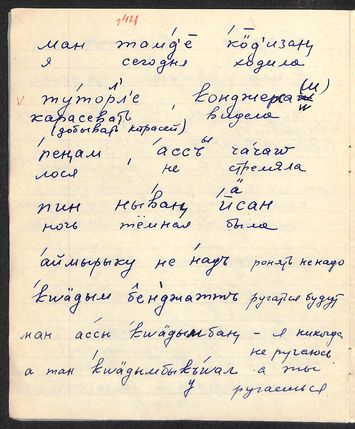 144
ман тамд'е̄ ко̄д'изаӊ
я сегодня ходила
ту́торл'е конджерна (ш)
карасевать видела
(добывать карасей)
р́еӊам ассъ ча́чаш
лося не стреляла
пин ны́ваӊ йсан
ночь тёмная была
а́ймырыку не на́дъ ронять не надо
кwӓдым бе̂нджатть ругаться будут
ман ассы кwӓдымбаӊ - я никогда
не ругаюсь
а тан кwӓдымбыкъwал а ты
ругаешься